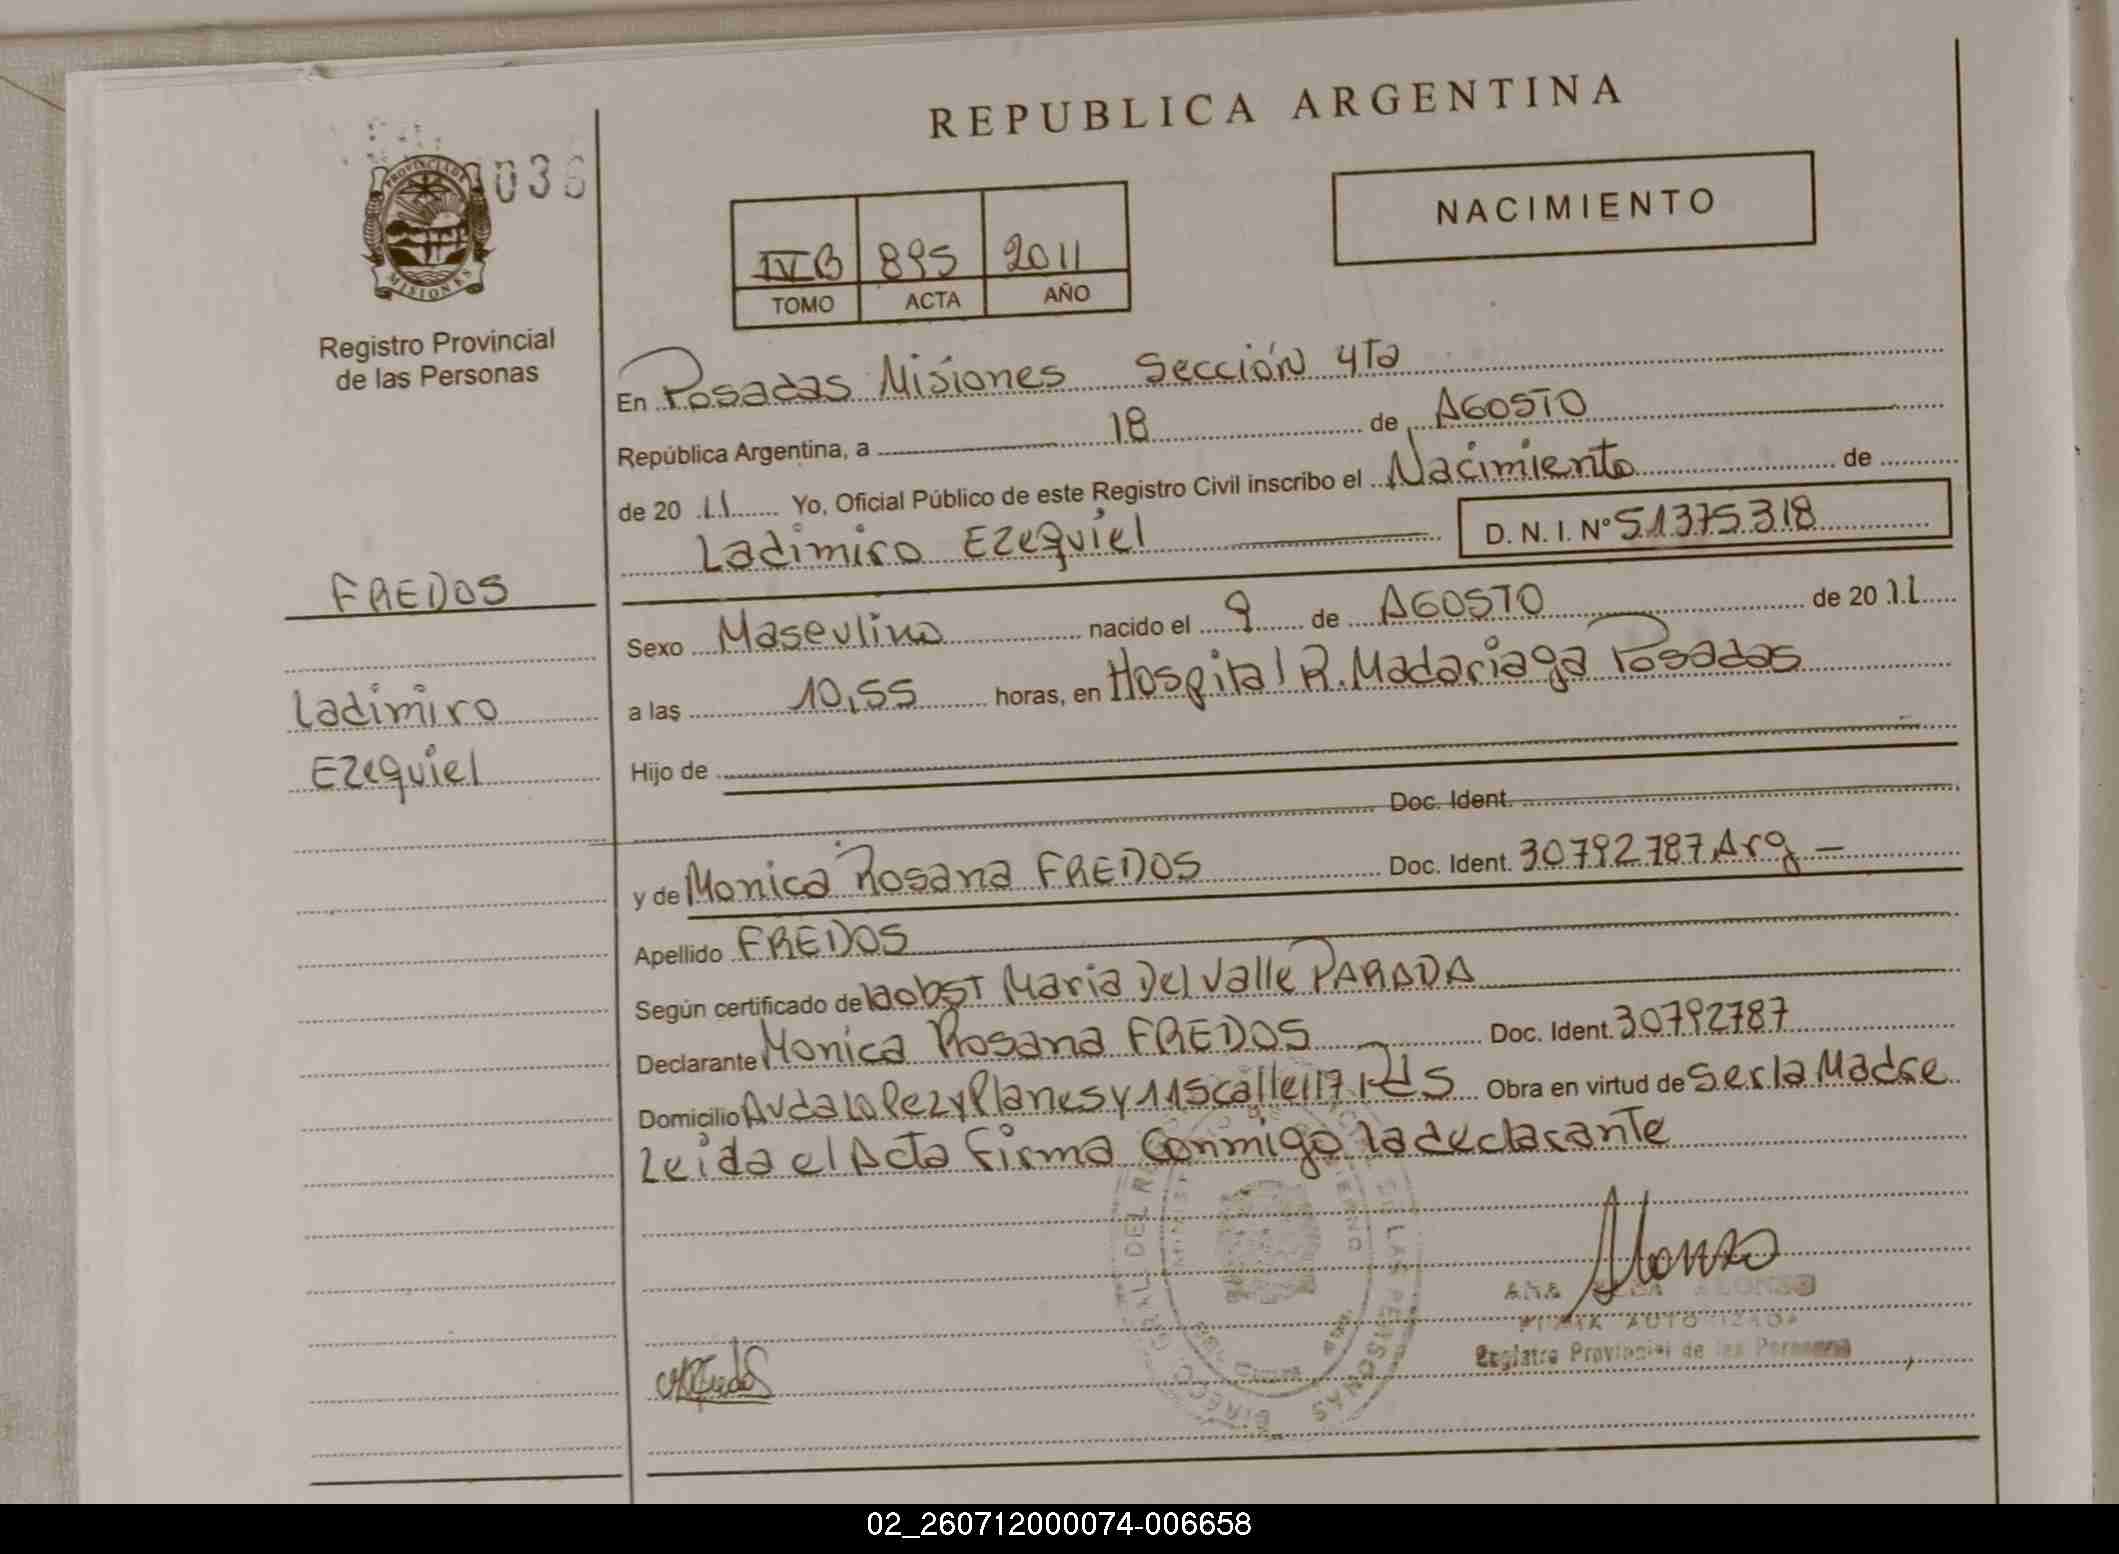 REPUBLICA ARGENTINA
036
PROVINCIA DE
MISIONES
Registro Provincial
de las Personas
NACIMIENTO
IV B 895 2011
TOMO ACTA AÑO
En Posadas Misiones Sección 4ta
República Argentina, a 18 de AGOSTO
de 20 11 Yo, Oficial Público de este Registro Civil inscribo el Nacimiento de
Ladimiro Ezequiel D. N. I. Nº 51375318
FREDOS
Sexo Masculino nacido el 9 de AGOSTO de 20 11
Ladimiro
a las 10,55 horas, en Hospital R. Madariaga Posadas
Ezequiel
Hijo de
Doc. Ident.
y de Monica Rosana FREDOS Doc. Ident. 30792787 Arg –
Apellido FREDOS
Según certificado de la obst Maria Del Valle PARADA
Declarante Monica Rosana FREDOS Doc. Ident. 30792787
Domicilio Avda Lopez y Planes y 115 calle 117 Pds Obra en virtud de Ser la Madre
Leida el Acta Firma Conmigo la declarante
ANA ALONSO
FIRMA AUTORIZADA
Registro Provincial de las Personas
02_260712000074-006658